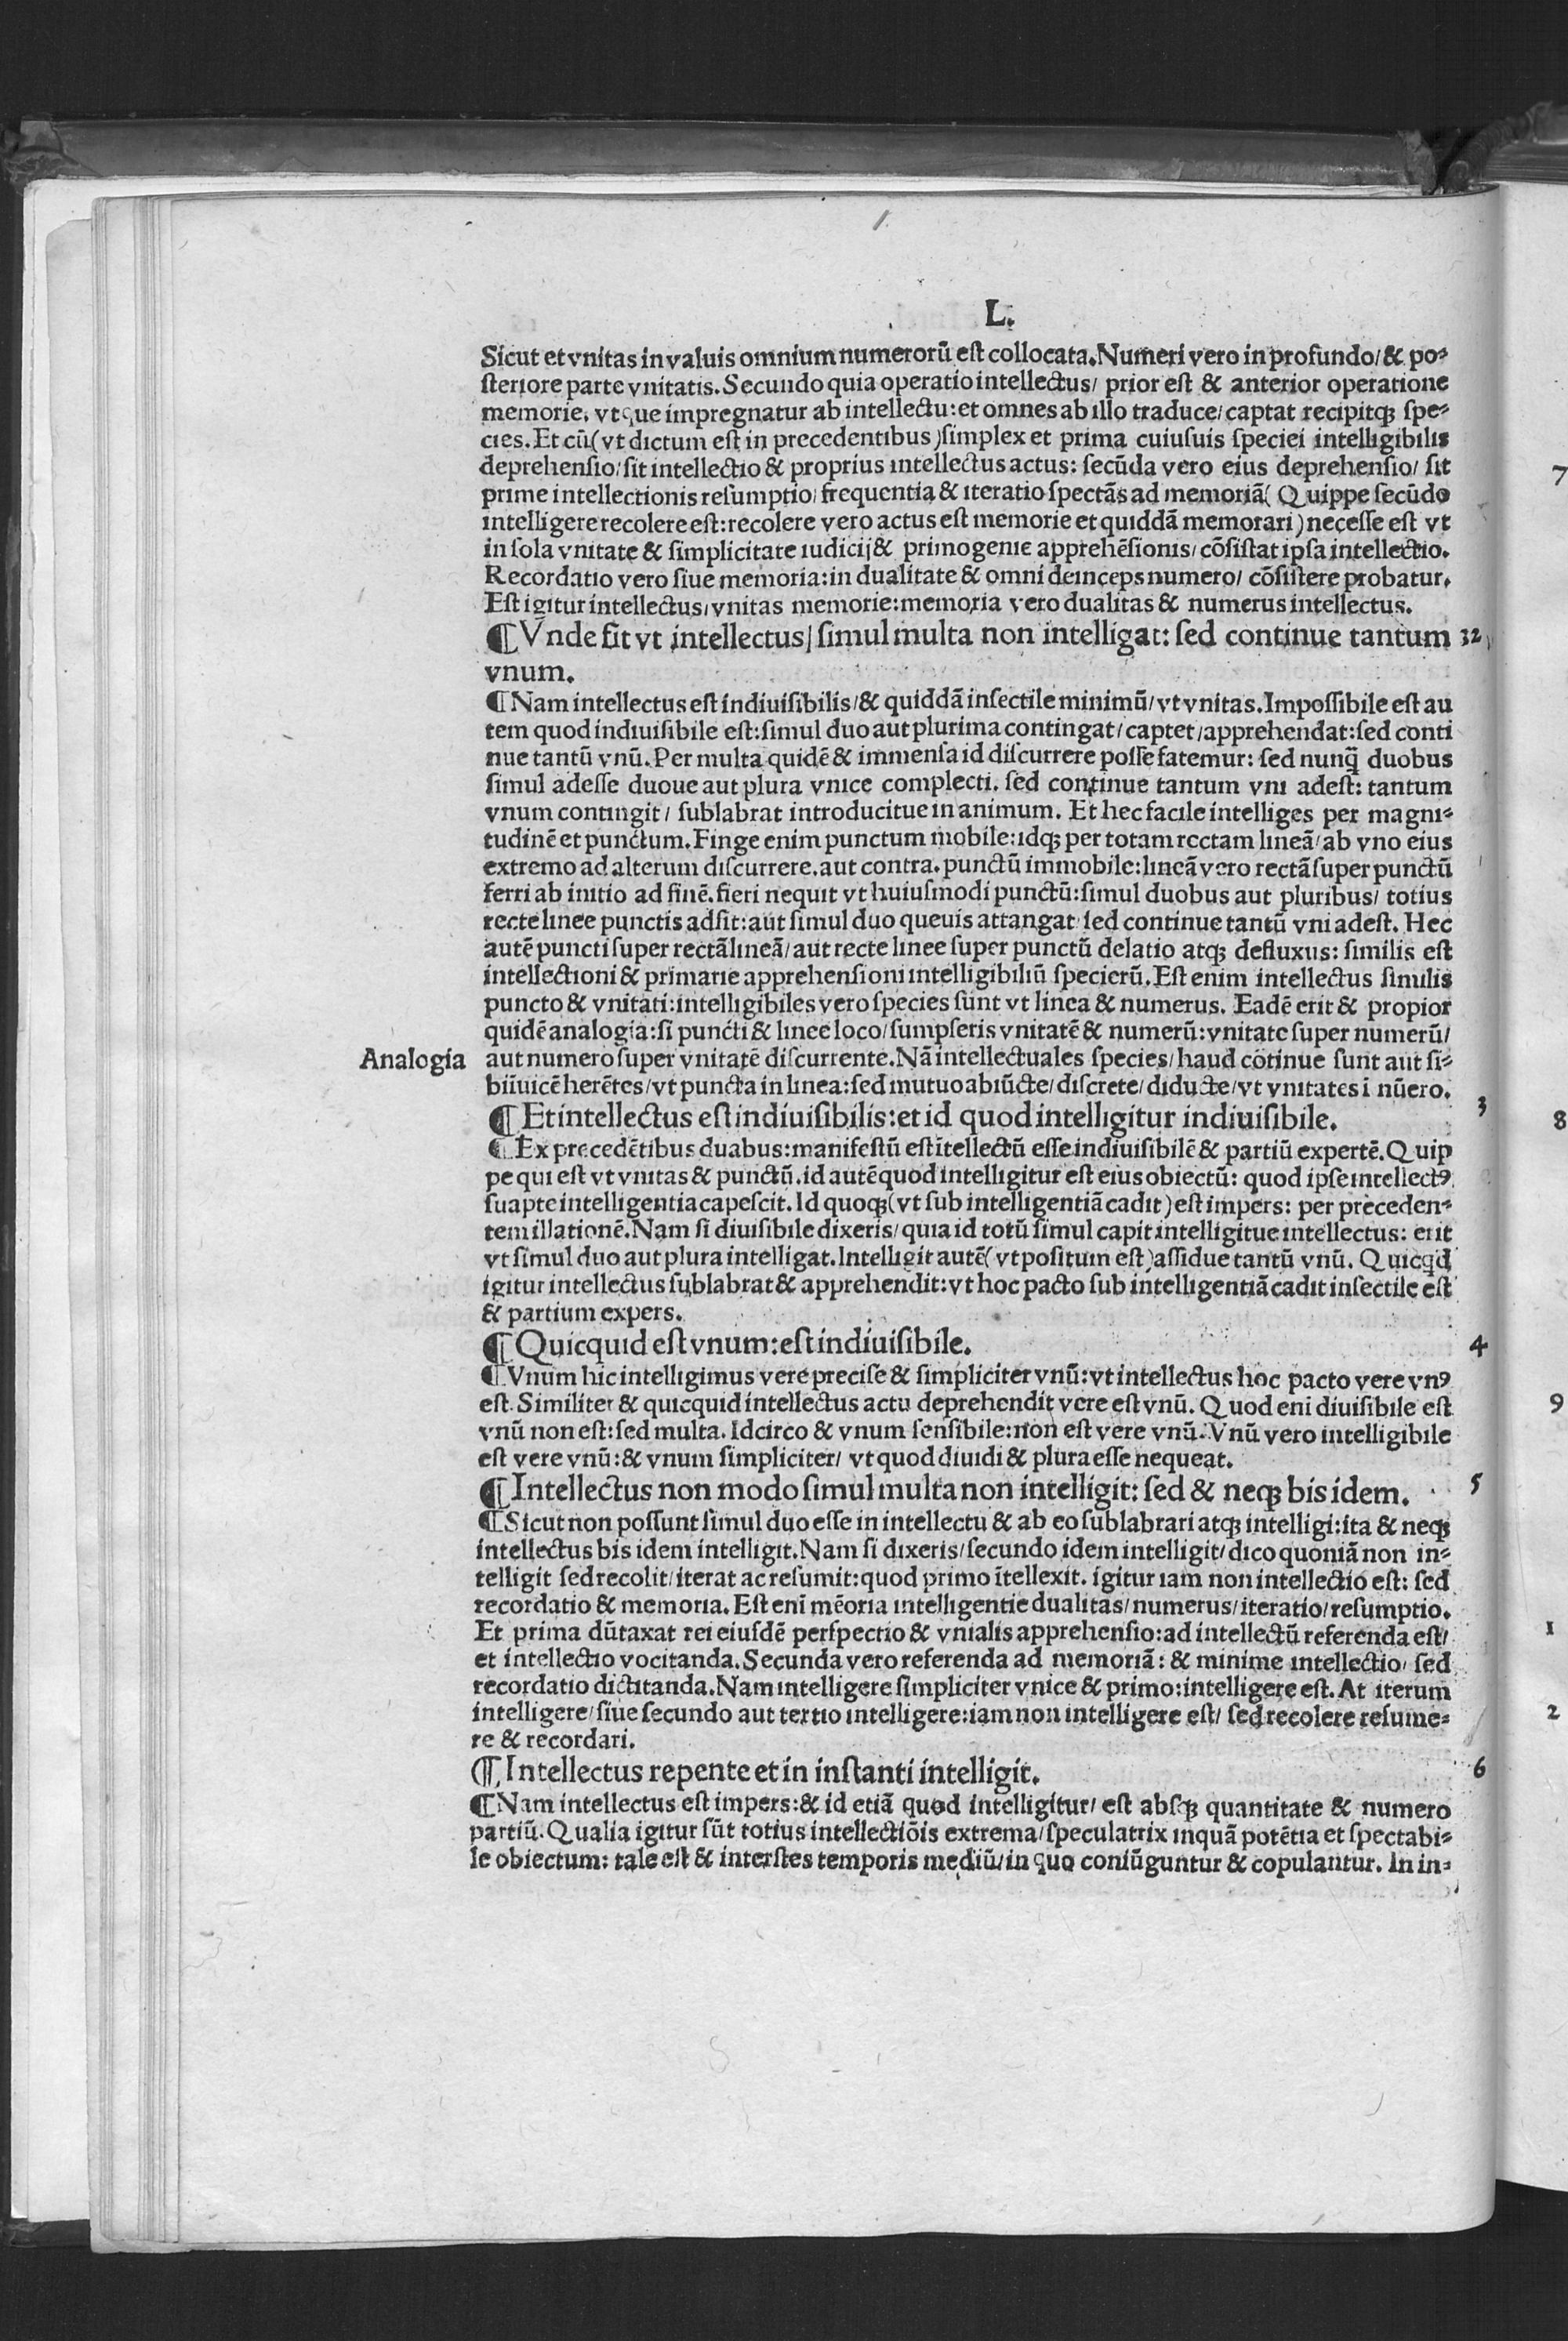 L.
Sicut et vnitas in valuis omnium numerorū est collocata. Numeri vero in profundo/ & po-
steriore parte vnitatis. Secundo quia operatio intellectus/ prior est & anterior operatione
memorie. vtque impregnatur ab intellectu: et omnes ab illo traduce/ captat recipitqꝫ spe-
cies. Et cū (vt dictum est in precedentibus) simplex et prima cuiusuis speciei intelligibilis
deprehensio/ sit intellectio & proprius intellectus actus: secūda vero eius deprehensio/ sit
prime intellectionis resumptio/ frequentia & iteratio spectās ad memoriā (Quippe secūdo
intelligere recolere est: recolere vero actus est memorie et quiddā memorari) necesse est vt
in sola vnitate & simplicitate iudicij & primogenie apprehēsionis/ cōsistat ipsa intellectio.
Recordatio vero siue memoria: in dualitate & omni deinceps numero/ cōsistere probatur.
Est igitur intellectus/ vnitas memorie: memoria vero dualitas & numerus intellectus.
¶ Vnde fit vt intellectus/ simul multa non intelligat: sed continue tantum 32
vnum.
¶ Nam intellectus est indiuisibilis/ & quiddā insectile minimū/ vt vnitas. Impossibile est au
tem quod indiuisibile est: simul duo aut plurima contingat/ captet/ apprehendat: sed conti
nue tantū vnū. Per multa quidē & immensa id discurrere posse fatemur: sed nunq̄ duobus
simul adesse duoue aut plura vnice complecti. sed continue tantum vni adest: tantum
vnum contingit/ sublabrat introducitue in animum. Et hec facile intelliges per magni-
tudinē et punctum. Finge enim punctum mobile: idqꝫ per totam rectam lineā/ ab vno eius
extremo ad alterum discurrere. aut contra. punctū immobile: lineā vero rectā super punctū
ferri ab initio ad finē. fieri nequit vt huiusmodi punctū: simul duobus aut pluribus/ totius
recte linee punctis adsit: aut simul duo queuis attangat/ sed continue tantū vni adest. Hec
autē puncti super rectā lineā/ aut recte linee super punctū delatio atqꝫ defluxus: similis est
intellectioni & primarie apprehensioni intelligibiliū specierū. Est enim intellectus similis
puncto & vnitati: intelligibiles vero species sunt vt linea & numerus. Eadē erit & propior
quidē analogia: si puncti & linee loco/ sumpseris vnitatē & numerū: vnitate super numerū/
Analogia aut numero super vnitatē discurrente. Nā intellectuales species/ haud cōtinue sunt aut si-
biīuicē herētes/ vt puncta in linea: sed mutuo abiūcte/ discrete/ diducte/ vt vnitates ī nūero.
¶ Et intellectus est indiuisibilis: et id quod intelligitur indiuisibile. 3
¶ Ex precedētibus duabus: manifestū est ītellectū esse indiuisibilē & partiū expertē. Quip
pe qui est vt vnitas & punctū. id autē quod intelligitur est eius obiectū: quod ipse intellectꝰ
suapte intelligentia capescit. Id quoqꝫ (vt sub intelligentiā cadit) est impers: per preceden-
tem illationē. Nam si diuisibile dixeris/ quia id totū simul capit intelligitue intellectus: erit
vt simul duo aut plura intelligat. Intelligit autē (vt positum est) assidue tantū vnū. Quicq̄d
igitur intellectus sublabrat & apprehendit: vt hoc pacto sub intelligentiā cadit insectile est
& partium expers.
¶ Quicquid est vnum: est indiuisibile. 4
¶ Vnum hic intelligimus vere precise & simpliciter vnū: vt intellectus hoc pacto vere vnꝰ
est. Similiter & quicquid intellectus actu deprehendit vere est vnū. Quod eni diuisibile est
vnū non est: sed multa. Idcirco & vnum sensibile: non est vere vnū. Vnū vero intelligibile
est vere vnū: & vnum simpliciter/ vt quod diuidi & plura esse nequeat.
¶ Intellectus non modo simul multa non intelligit: sed & neqꝫ bis idem. 5
¶ Sicut non possunt simul duo esse in intellectu & ab eo sublabrari atqꝫ intelligi: ita & neqꝫ
intellectus bis idem intelligit. Nam si dixeris/ secundo idem intelligit/ dico quoniā non in-
telligit sed recolit/ iterat ac resumit: quod primo ītellexit. igitur iam non intellectio est: sed
recordatio & memoria. Est enī mēoria intelligentie dualitas/ numerus/ iteratio/ resumptio.
Et prima dūtaxat rei eiusdē perspectio & vnialis apprehensio: ad intellectū referenda est/
et intellectio vocitanda. Secunda vero referenda ad memoriā: & minime intellectio/ sed
recordatio dictitanda. Nam intelligere simpliciter vnice & primo: intelligere est. At iterum
intelligere/ siue secundo aut tertio intelligere: iam non intelligere est/ sed recolere resume-
re & recordari.
¶ Intellectus repente et in instanti intelligit. 6
¶ Nam intellectus est impers: & id etiā quod intelligitur/ est absqꝫ quantitate & numero
partiū. Qualia igitur sūt totius intellectiōis extrema/ speculatrix inquā potētia et spectabi-
le obiectum: tale est & interstes temporis mediū/ in quo coniūguntur & copulantur. In in-
7
8
9
1
2